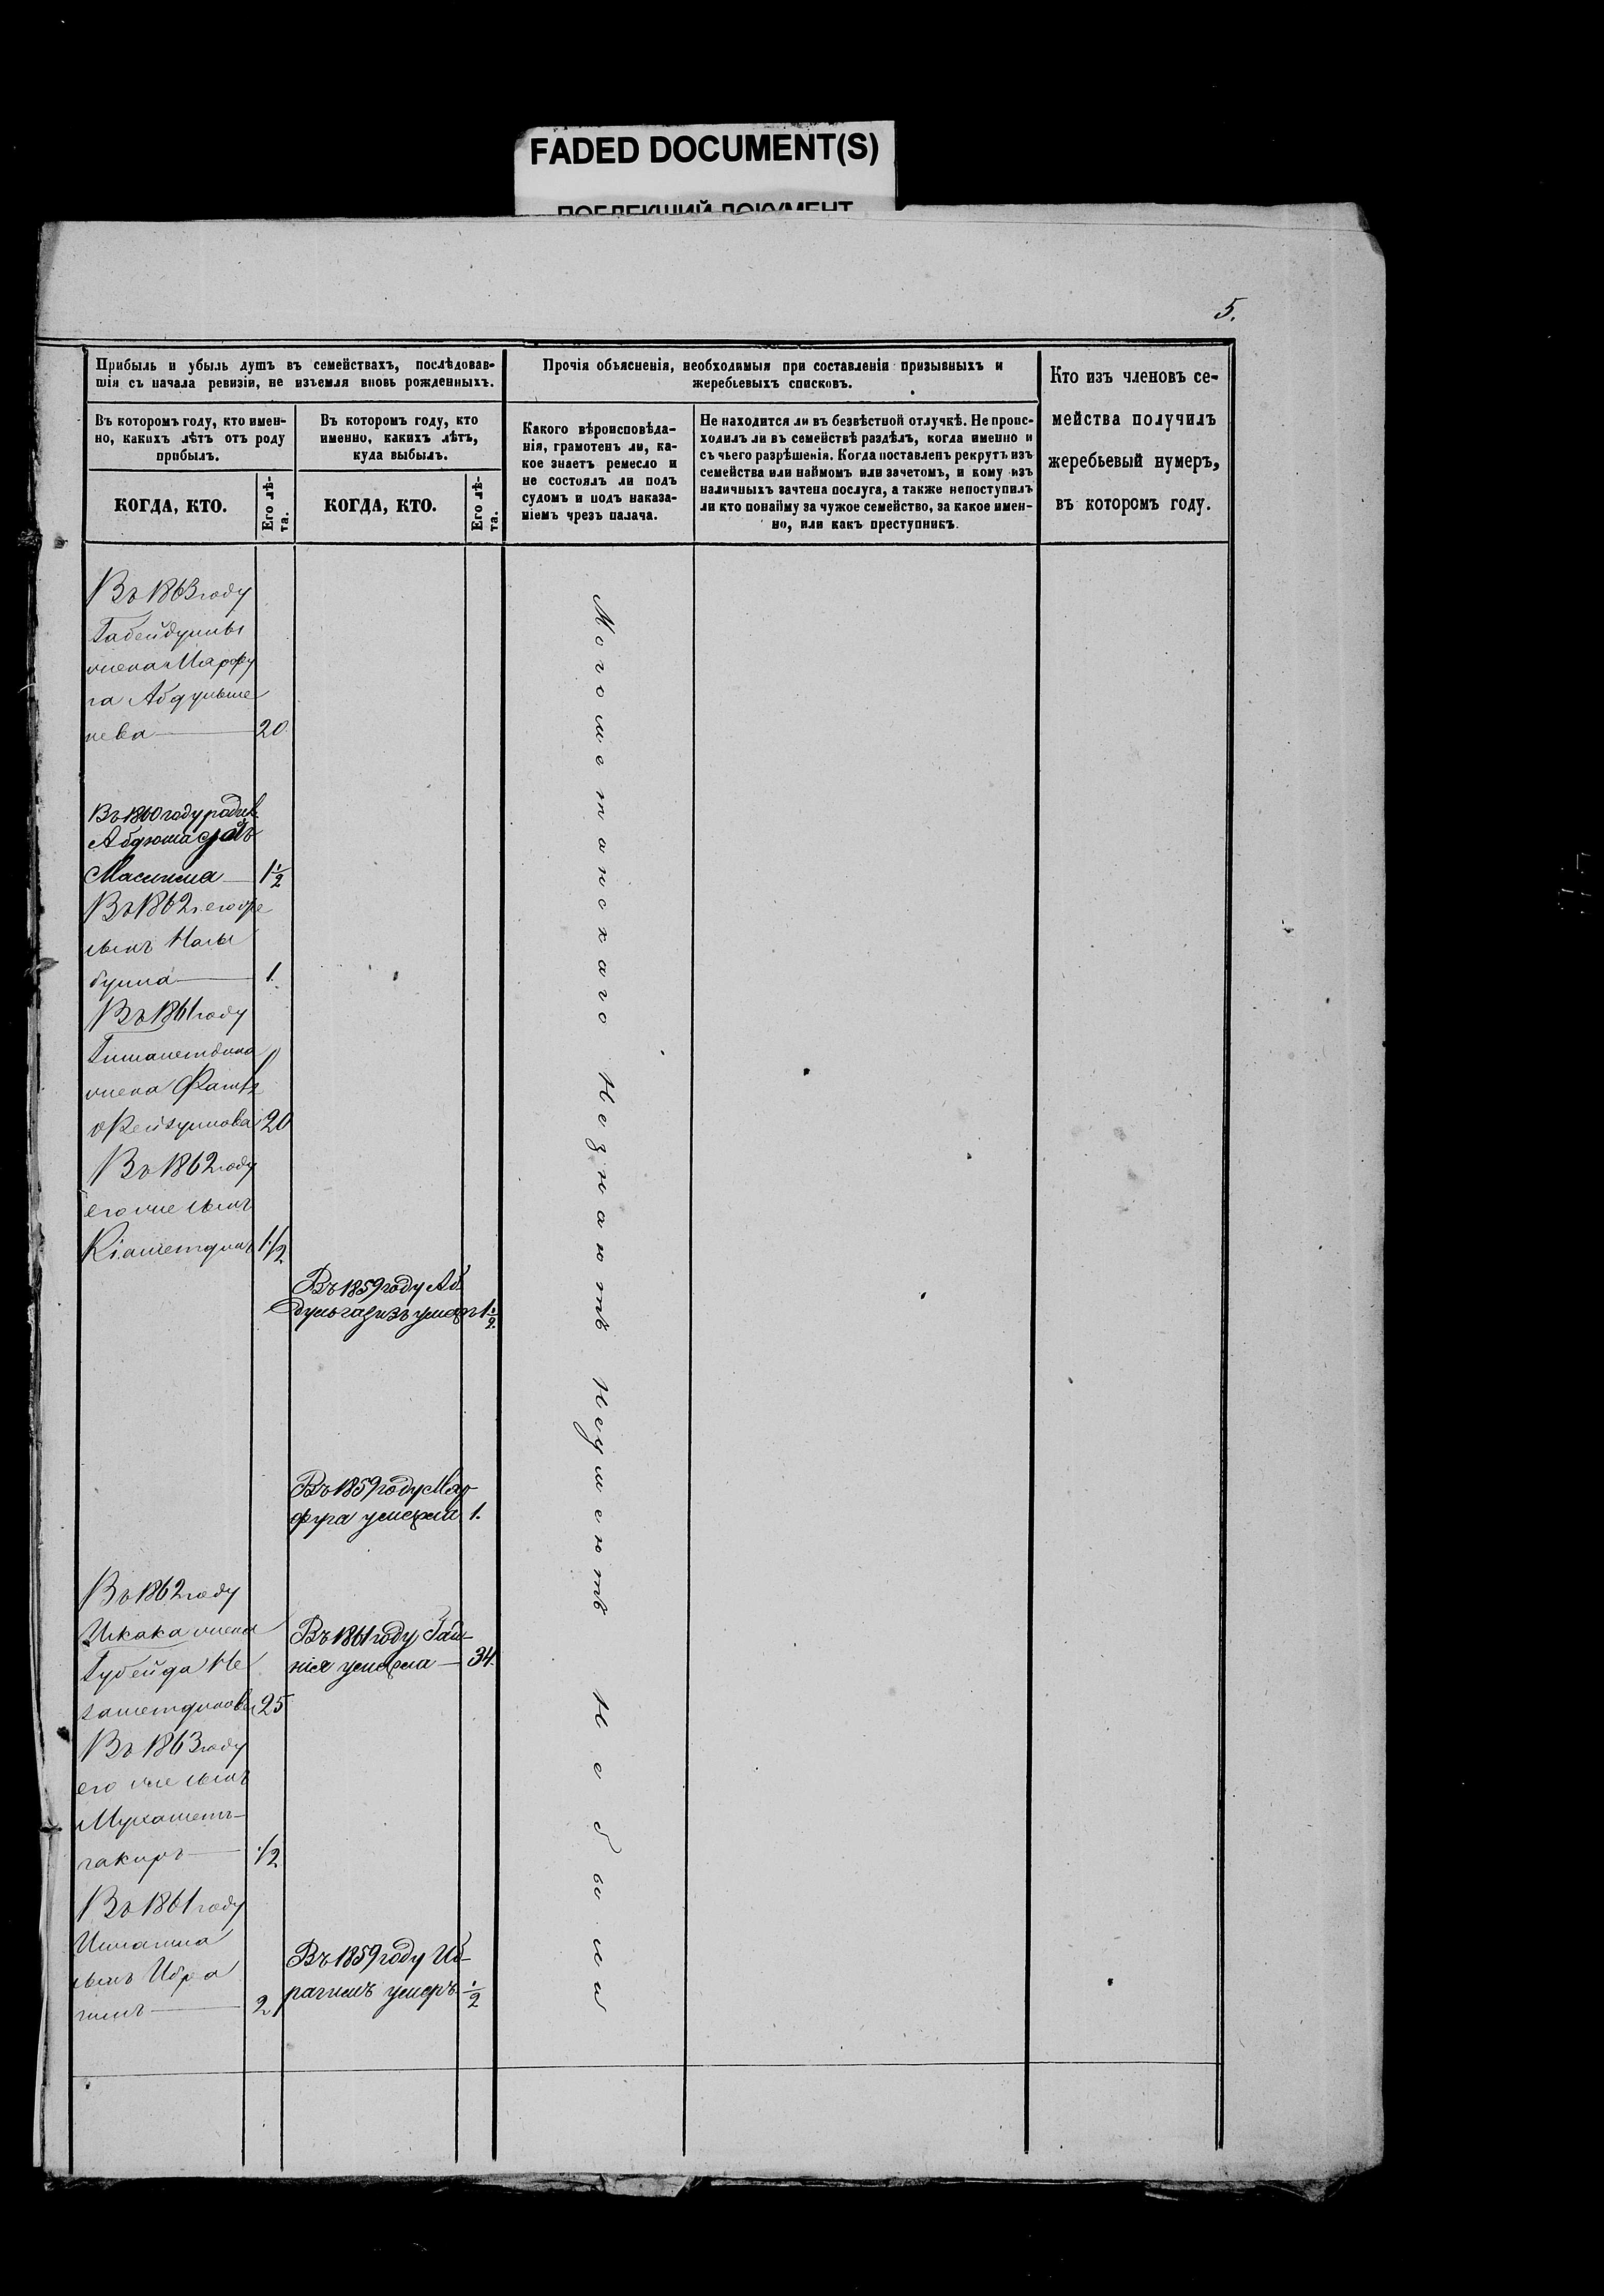 FADED DOCUMENT(S)
ПОБЛЕКШИЙ ДОКУМЕНТ
5.
Прибыль и убыль душъ въ семействахъ, послѣдовав-
шія съ начала ревизіи, не изъемля вновь рожденныхъ.
Въ которомъ году, кто имен-
но, какихъ лѣтъ отъ роду
прибылъ.
Въ которомъ году, кто
именно, какихъ лѣтъ,
куда выбылъ.
КОГДА, КТО.
Его лѣ-
та.
КОГДА, КТО.
Его лѣ-
та.
Прочія объясненія, необходимыя при составленіи призывныхъ и
жеребьевыхъ списковъ.
Какого вѣроисповѣда-
нія, грамотенъ ли, ка-
кое знаетъ ремесло и
не состоялъ ли подъ
судомъ и подъ наказа-
ніемъ чрезъ палача.
Не находится ли въ безвѣстной отлучкѣ. Не проис-
ходилъ ли въ семействѣ раздѣлъ, когда именно и
съ чьего разрѣшенія. Когда поставленъ рекрутъ изъ
семейства или наймомъ или зачетомъ, и кому изъ
наличныхъ зачтена послуга, а также непоступилъ
ли кто понайму за чужое семейство, за какое имен-
но, или какъ преступникъ.
Кто изъ членовъ се-
мейства получилъ
жеребьевый нумеръ,
въ которомъ году.
Въ 1863 году
Габейдуллы
жена Марфу
га Абдульме
нева 20
Въ 1860 году
1 1/2
Въ 1862
сынъ
1.
Въ 1861 году
жена
20
Въ 1862 году
его же сынъ
1 1/2
Въ 1859 году Аб
дульгазизъ умеръ 1 1/2.
Въ 1859 году Мар-
фуга умерла 1.
Въ 1862 году
Искака жена
Губейда Не
заметдинова 25
Въ 1861 году Гай-
нія умерла 34.
Въ 1863 году
его же сынъ
Мухаметъ-
закиръ 1/2
Въ 1861 году
сынъ Ибра
гимъ 2
Въ 1859 году Иб-
рагимъ умеръ 1/2
Могометанскаго Незнаютъ Неумеютъ Небыли